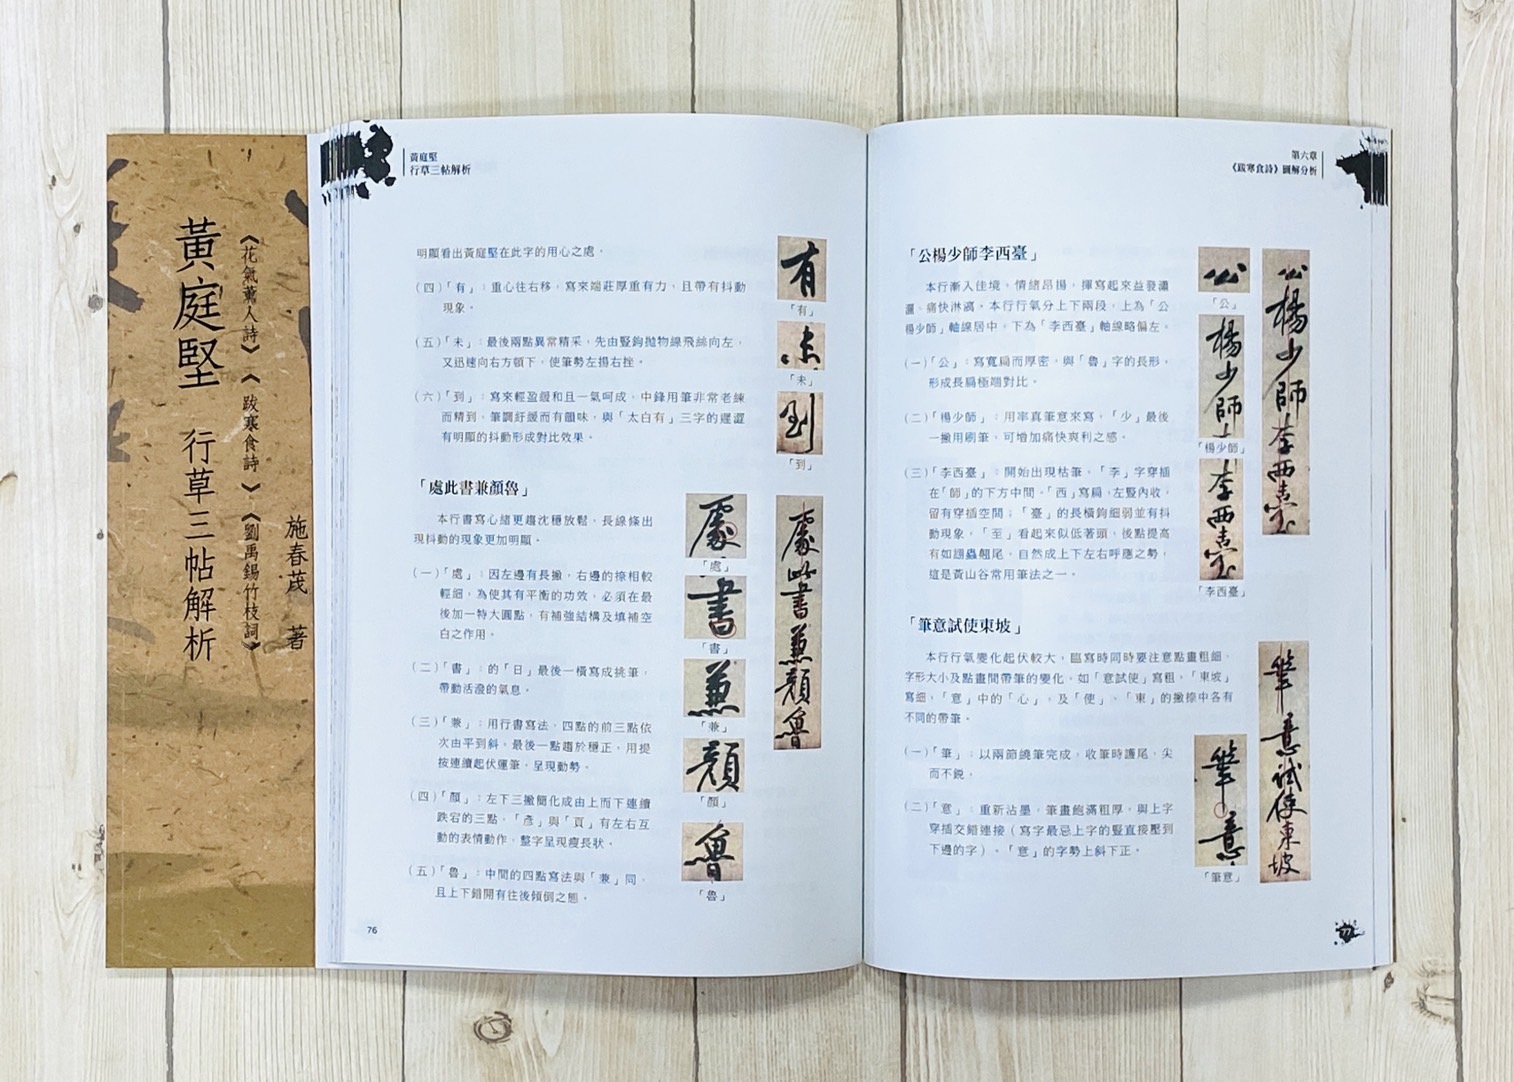 黃庭堅 行草三帖解析
《花氣薰人詩》《跋寒食詩》《劉禹錫竹枝詞》
施春茂 著
黃庭堅
行草三帖解析
明顯看出黃庭堅在此字的用心之處。
(四)「有」：重心往右移，寫來端莊厚重有力，且帶有抖動
現象。
(五)「未」：最後兩點異常精采，先由豎鉤拋物線飛絲向左，
又迅速向右方頓下，使筆勢左揚右挫。
(六)「到」：寫來輕盈緩和且一氣呵成，中鋒用筆非常老練
而精到，筆調紓緩而有韻味，與「太白有」三字的遲澀
有明顯的抖動形成對比效果。
有
「有」
未
「未」
到
「到」
「處此書兼顏魯」
本行書寫心緒更趨沈穩放鬆，長線條出
現抖動的現象更加明顯。
(一)「處」：因左邊有長撇，右邊的捺相較
輕細，為使其有平衡的功效，必須在最
後加一特大圓點，有補強結構及填補空
白之作用。
(二)「書」的「日」最後一橫寫成挑筆，
帶動活潑的氣息。
(三)「兼」：用行書寫法，四點的前三點依
次由平到斜，最後一點趨於穩正，用提
按連續起伏運筆，呈現動勢。
(四)「顏」：左下三撇簡化成由上而下連續
跌宕的三點，「彥」與「頁」有左右互
動的表情動作，整字呈現瘦長狀。
(五)「魯」：中間的四點寫法與「兼」同，
且上下錯開有往後傾倒之態。
處
「處」
書
「書」
兼
「兼」
顏
「顏」
魯
「魯」
處此書兼顏魯
76
第六章
《跋寒食詩》圖解分析
「公楊少師李西臺」
本行漸入佳境，情緒昂揚，揮寫起來益發瀟
灑、痛快淋漓。本行行氣分上下兩段，上為「公
楊少師」軸線居中，下為「李西臺」軸線略偏左。
(一)「公」：寫寬扁而厚密，與「魯」字的長形，
形成長扁極端對比。
(二)「楊少師」：用率真筆意來寫，「少」最後
一撇用刷筆，可增加痛快爽利之感。
(三)「李西臺」：開始出現枯筆，「李」字穿插
在「師」的下方中間，「西」寫扁，左豎內收，
留有穿插空間；「臺」的長橫鉤細弱並有抖
動現象，「至」看起來似低著頭，後點提高
有如翹尾，自然成上下左右呼應之勢，
這是黃山谷常用筆法之一。
公
「公」
楊少師
「楊少師」
李西臺
「李西臺」
公楊少師李西臺
「筆意試使東坡」
本行行氣變化起伏較大，臨寫時同時要注意點畫粗細、
字形大小及點畫間帶筆的變化，如「意試使」寫粗，「東坡」
寫細，「意」中的「心」，及「使」、「東」的撇捺中各有
不同的帶筆。
(一)「筆」：以兩節繞筆完成，收筆時護尾，尖
而不銳。
(二)「意」：重新沾墨，筆畫飽滿粗厚，與上字
穿插交錯連接（寫字最忌上字的豎直接壓到
下邊的字），「意」的字勢上斜下正。
筆意
「筆意」
筆意試使東坡
77